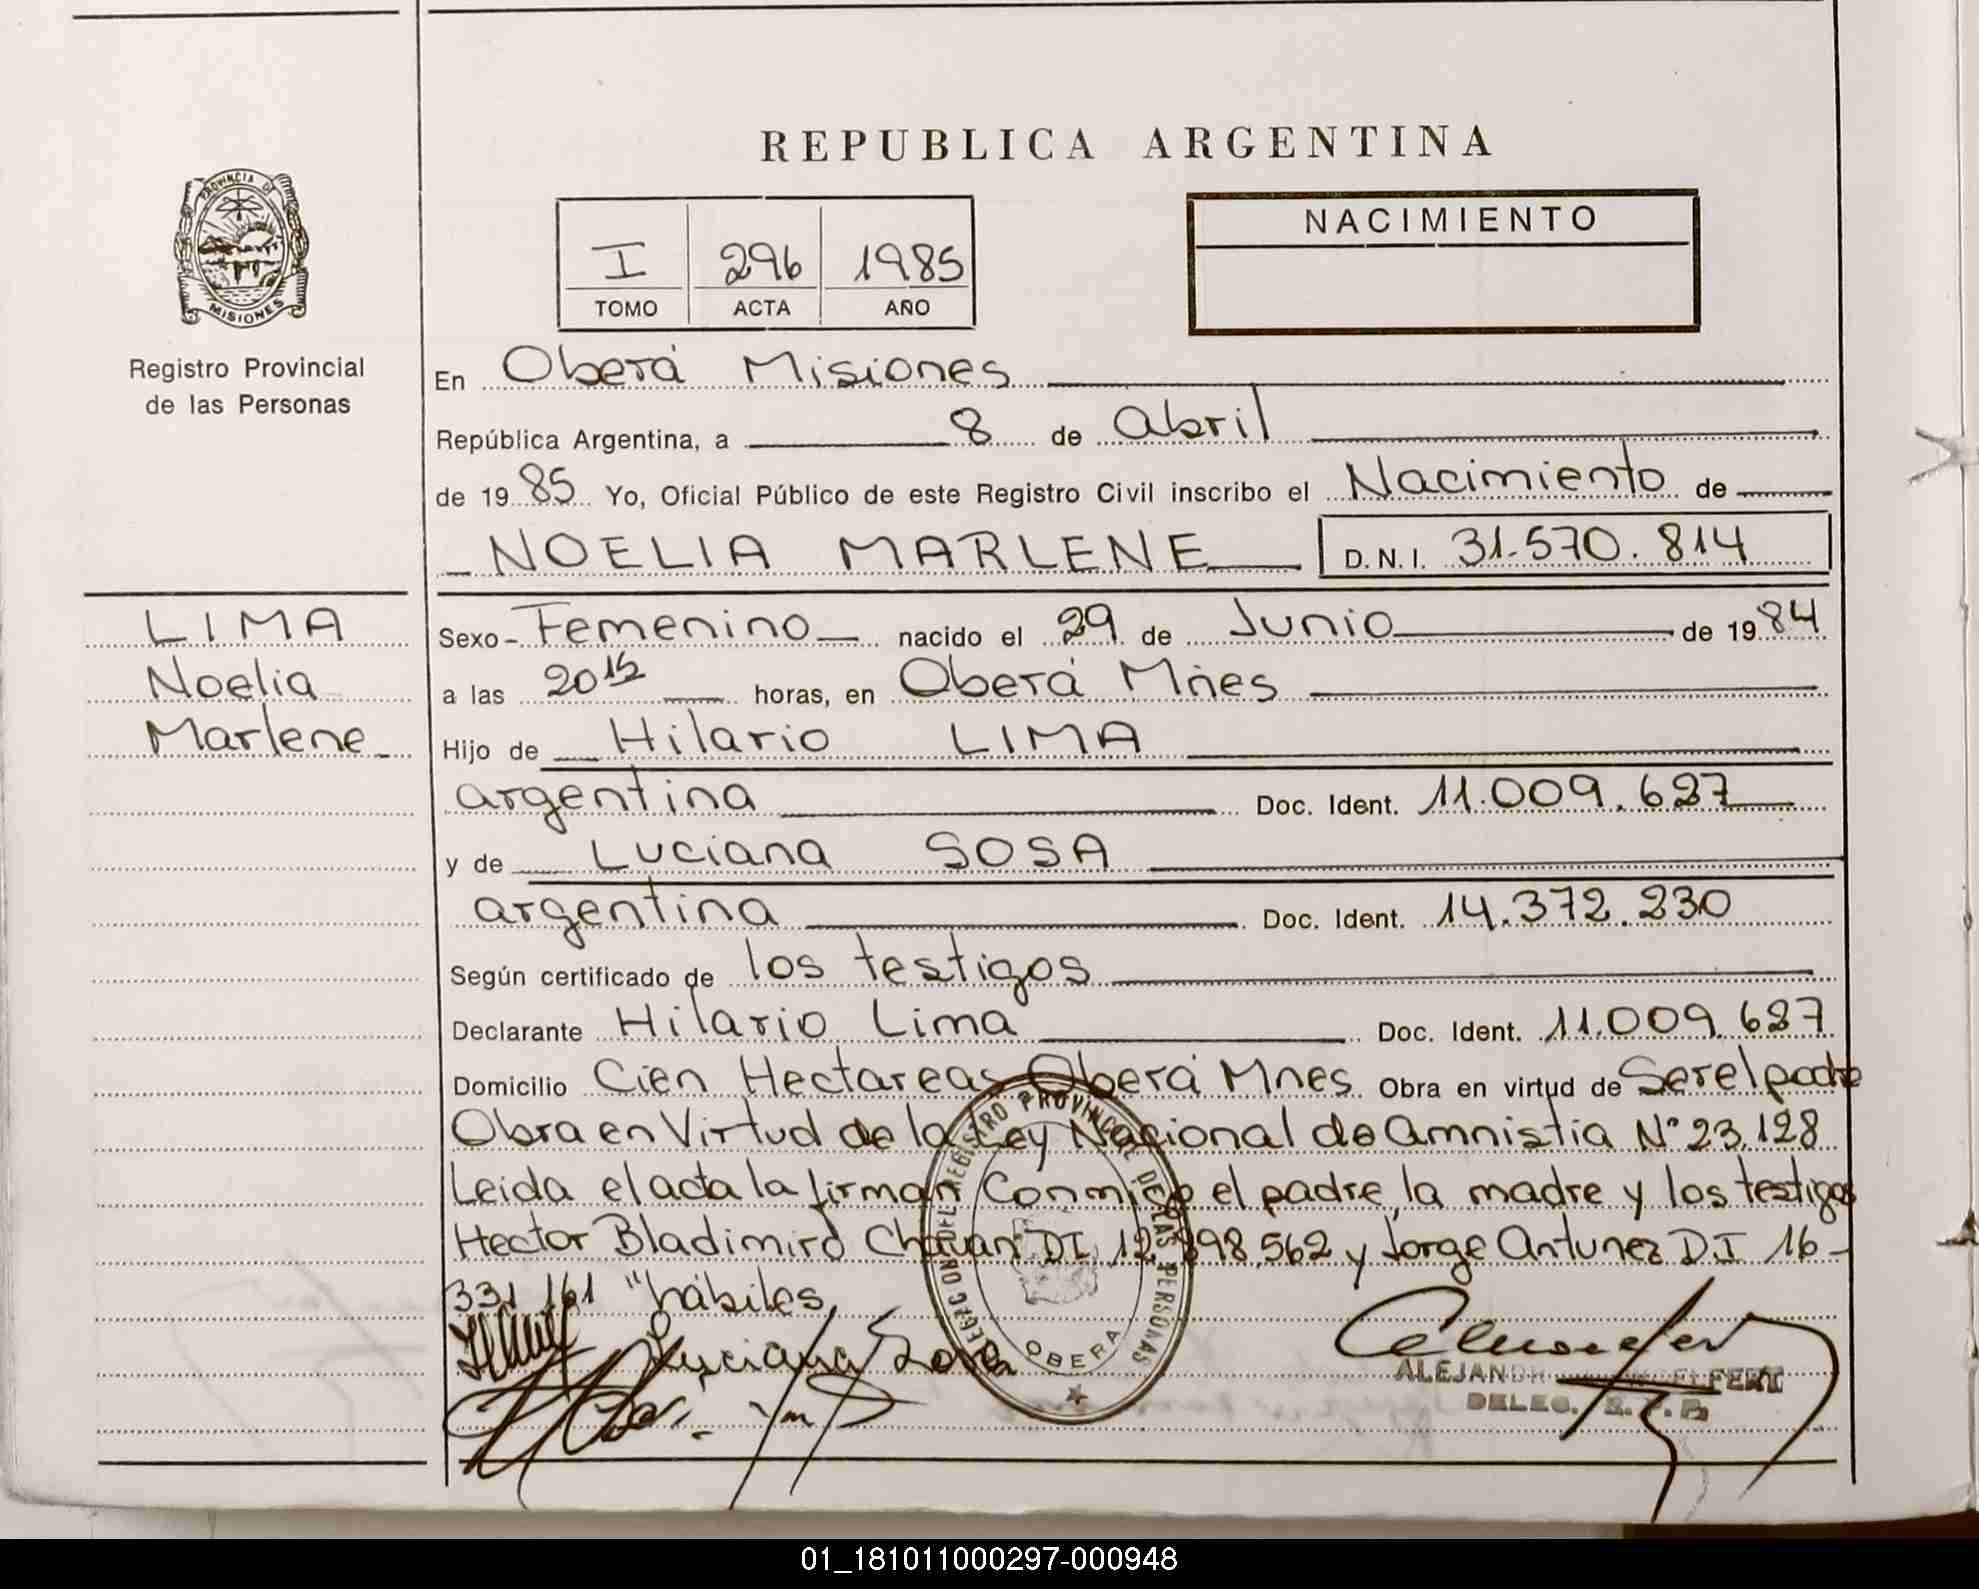 REPUBLICA ARGENTINA
PROVINCIA DE
MISIONES
Registro Provincial
de las Personas
I 296 1985
TOMO ACTA AÑO
NACIMIENTO
En Oberá Misiones
República Argentina, a 8 de abril
de 1985 Yo, Oficial Público de este Registro Civil inscribo el Nacimiento de
NOELIA MARLENE D.N.I. 31.570.814
LIMA
Noelia
Marlene
Sexo - Femenino nacido el 29 de Junio de 1984
a las 20 15 horas, en Oberá Mnes
Hijo de Hilario LIMA
argentina Doc. Ident. 11.009.627
y de Luciana SOSA
argentina Doc. Ident. 14.372.230
Según certificado de los testigos
Declarante Hilario Lima Doc. Ident. 11.009.627
Domicilio Cien Hectareas Oberá Mnes. Obra en virtud de Ser el padre
Obra en Virtud de la Ley Nacional de amnistia N° 23.128
Leida el acta la firman Conmigo el padre, la madre y los testigos
Hector Bladimiro DI. 562 y Jorge Antunez D.I 16-
331 161 "hábiles,
Luciana Sosa
REGISTRO PROVINCIAL DE LAS PERSONAS
OBERA
DELEG. R. P. P.
01_181011000297-000948